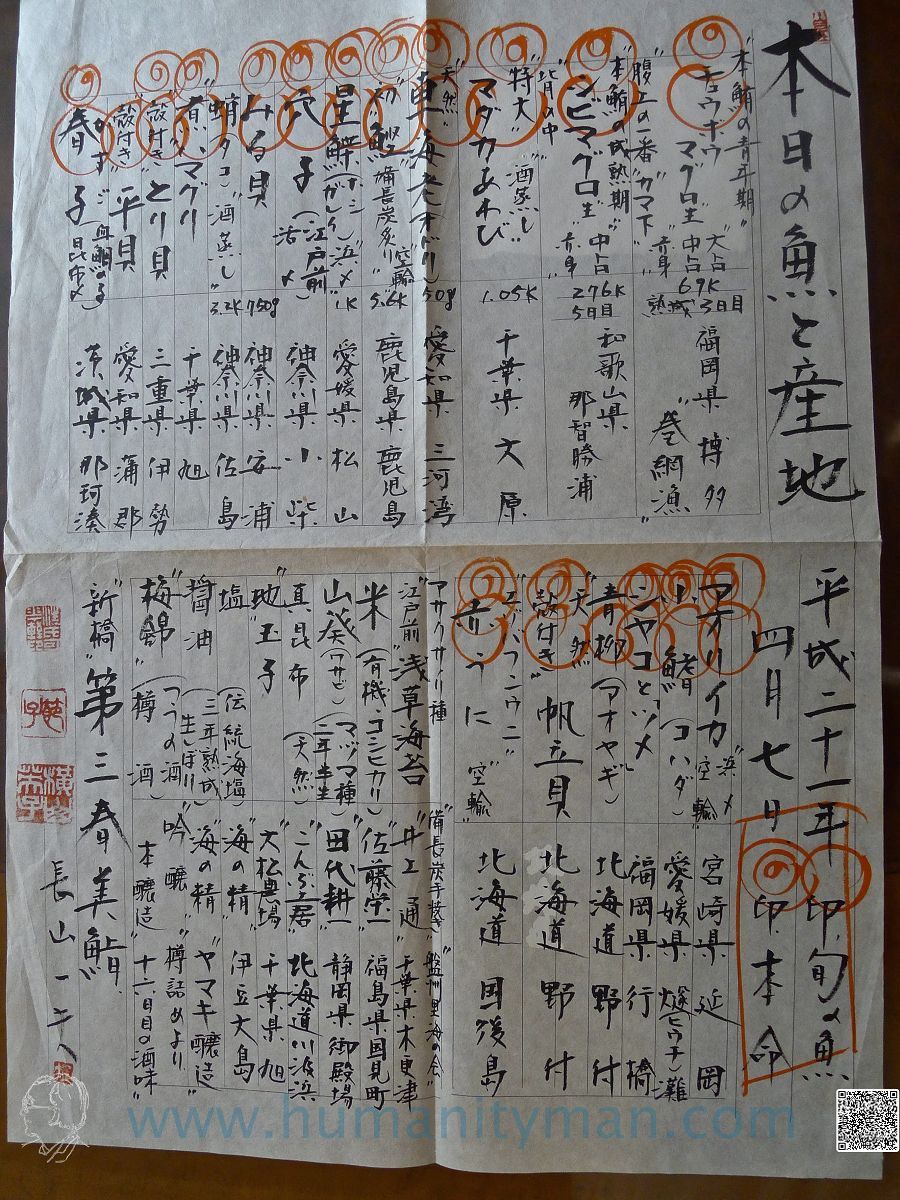 本日の魚と産地
"本鮪の青年期"
キュウボウ マグロ生 大占 中占 "赤身" 67K 熟成3日目 福岡県 博多 "巻網漁"
腹上の一番"カマ下"
"本鮪の成熟期"
シビマグロ生 中占 "赤身" 276K 5日目 和歌山県 那智勝浦
背の中
"特大" "酒蒸し"
マダカあわび 1.05K 千葉県 大原
"天然"
車海老 50g 愛知県 三河湾
"備長炭炙り" "空輸" 5.6K 鹿児島県 鹿児島
星鰈 浜〆 1K 愛媛県 松山
穴子 (江戸前) 活〆 神奈川県 小柴
みる貝 750g 神奈川県 安浦
蛸(タコ) "酒蒸し" 3.2K 神奈川県 佐島
煮ハマグリ 千葉県 旭
"殻付き" とり貝 三重県 伊勢
"殻付き" 平貝 愛知県 蒲郡
春子 "血鯛の子" 昆布〆 茨城県 那珂湊
平成二十一年
四月七日
印 旬の魚
印 本命
アオリイカ 浜〆 "空輸" 宮崎県 延岡
小鰭 (コハダ) 愛媛県 燧(ヒウチ)灘
シャコとツメ 福岡県 行橋
青柳 (アオヤギ) 北海道 野付
"天然"
"殻付き" 帆立貝 北海道 野付
"エゾバフンウニ"
赤うに "空輸" 北海道 国後島
アサクサノリ種 "備長炭手焼き" "盤州里海の会"
"江戸前" 浅草海苔 "井上 通" 千葉県木更津
米 (有機コシヒカリ) "佐藤栄一" 福島県国見町
山葵 (ワサビ) (マヅマ種 二年半生) "田代耕一" 静岡県御殿場
真昆布 (天然) "こんぶ土居" 北海道川汲浜
"地"玉子 "大松農場" 千葉県旭
塩 (伝統海塩) "海の精" 伊豆大島
醤油 (三年熟成 生しぼり) "海の精" "ヤマキ醸造"
"梅錦" (つうの酒) 樽酒 "吟醸" 樽詰めより 本醸造 十六日目の酒味
"新橋" 第三春美鮨 長山一夫
www.humanityman.com